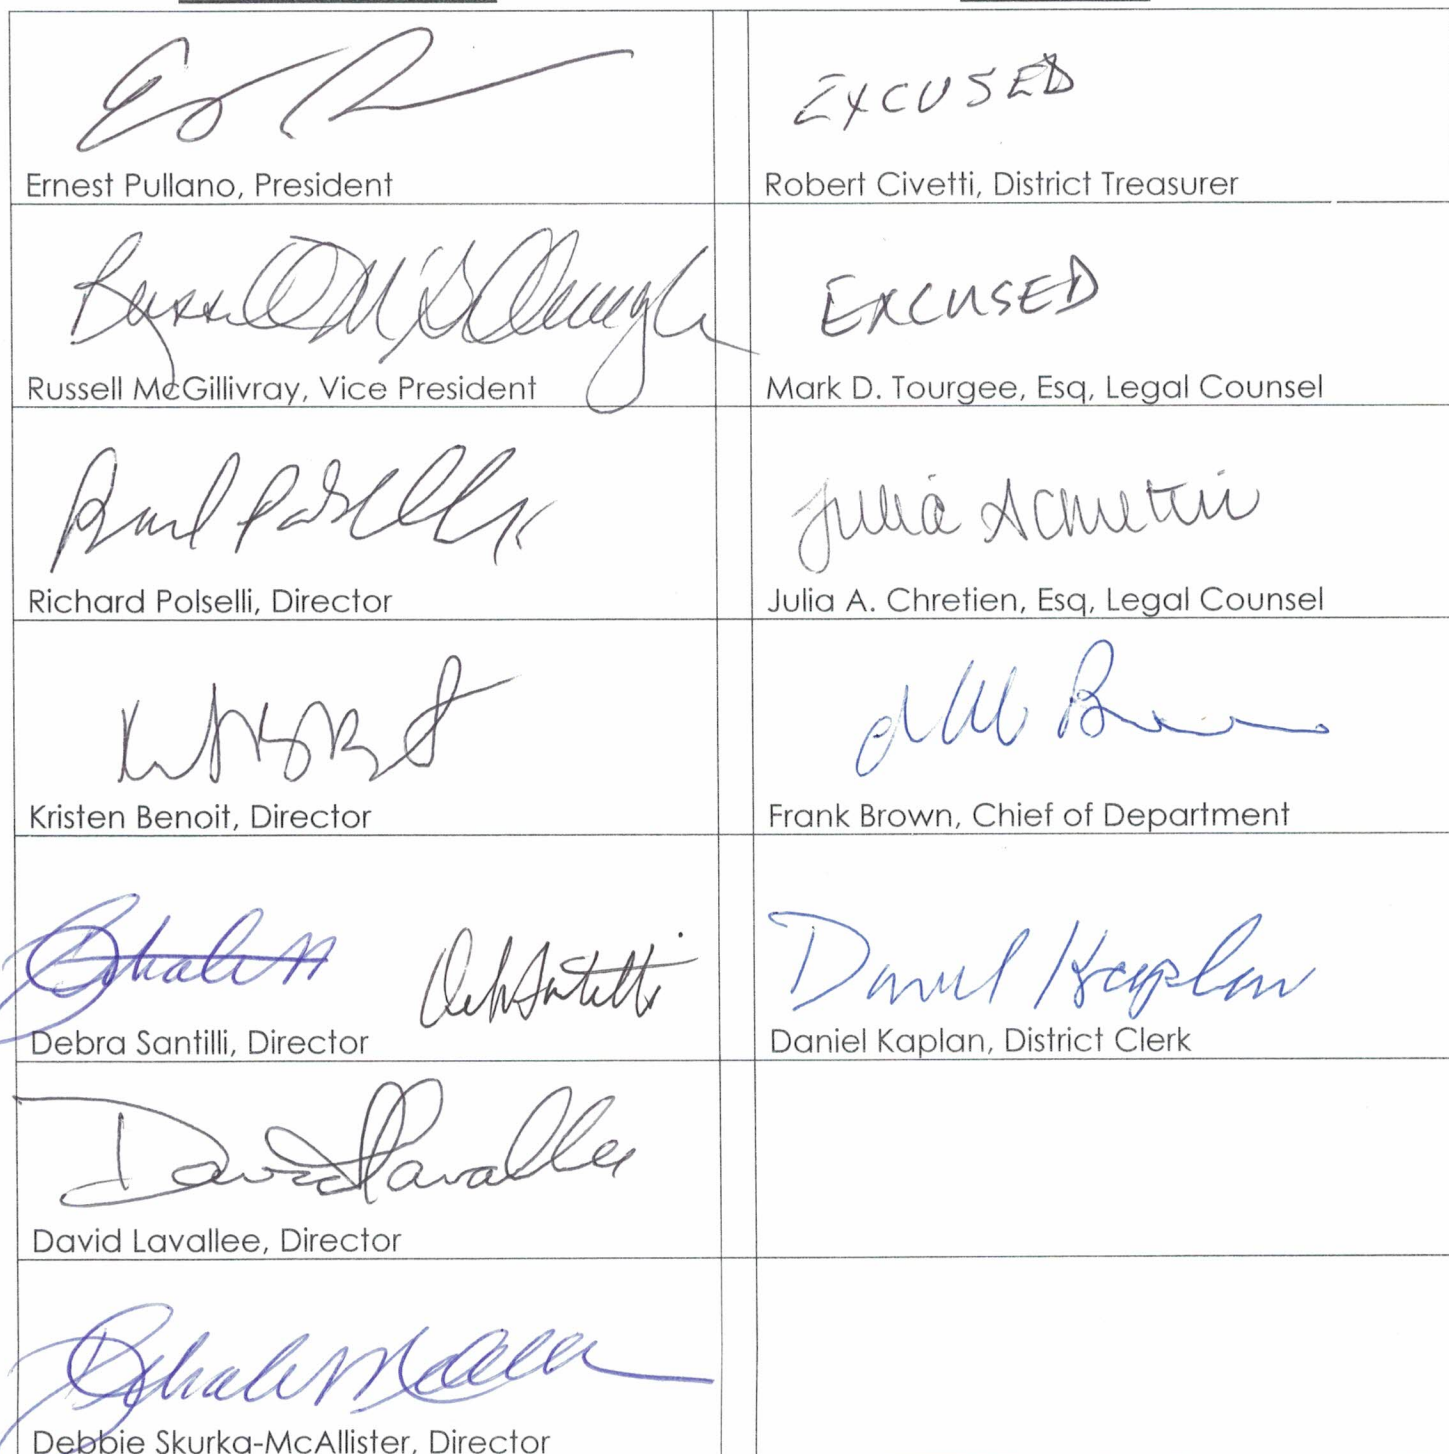 Ernest Pullano, President
EXCUSED
Robert Civetti, District Treasurer
Russell McGillivray, Vice President
EXCUSED
Mark D. Tourgee, Esq, Legal Counsel
Richard Polselli, Director
Julia A Chretien
Julia A. Chretien, Esq, Legal Counsel
Kristen Benoit, Director
Frank Brown, Chief of Department
Deb Santilli
Debra Santilli, Director
Daniel Kaplan
Daniel Kaplan, District Clerk
David Lavallee
David Lavallee, Director
Debbie Skurka-McAllister, Director